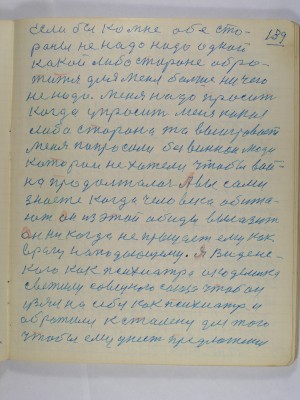 139
если бы ко мне обе сто-
роны не надо надо одной
какой либо стороне обра-
тится для меня больше ничего
не надо. Меня надо просить
когда упросит меня какая
либо сторона та выиграет
меня попросили бы
которые не хотели чтобы вой-
на продолжалас А вы сами
знаете когда человека обижа-
ют он из этой обиды
он никогда не прощает ему как
врагу нападающему. Я Виденс-
кого как психиатра академика
светилу советского союза чтобы он
взял на себя как психиатр и
обратился к сталину для того
чтобы ему внести предложение